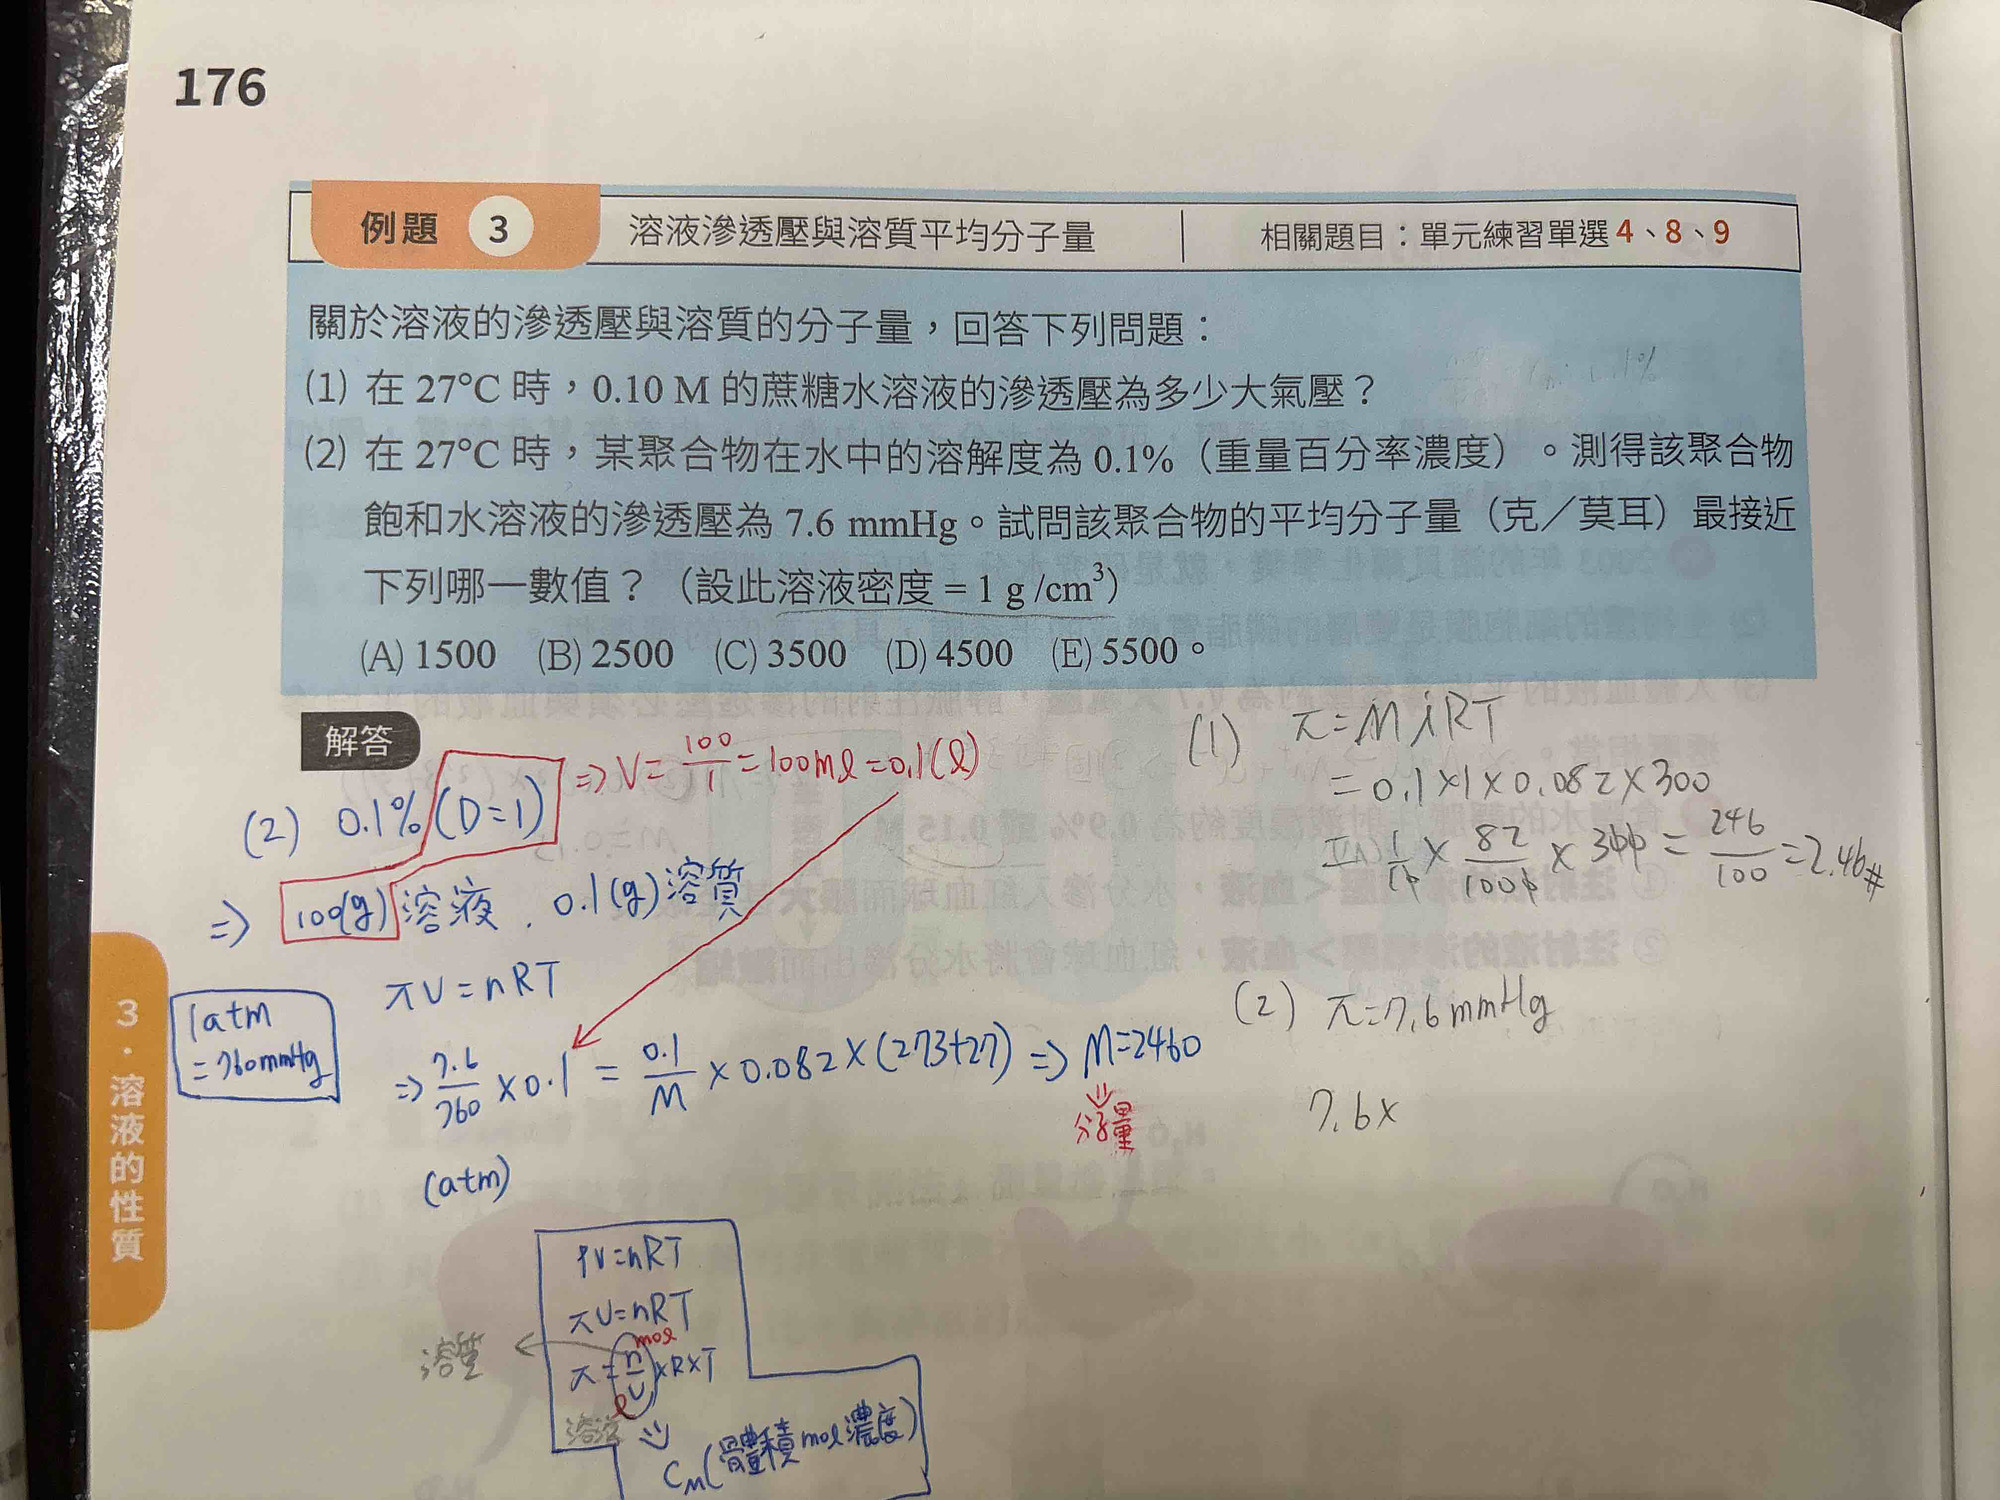 176
例題 3 溶液滲透壓與溶質平均分子量 相關題目：單元練習單選 4、8、9
關於溶液的滲透壓與溶質的分子量，回答下列問題：
(1) 在 27°C 時，0.10 M 的蔗糖水溶液的滲透壓為多少大氣壓？
(2) 在 27°C 時，某聚合物在水中的溶解度為 0.1%（重量百分率濃度）。測得該聚合物
飽和水溶液的滲透壓為 7.6 mmHg。試問該聚合物的平均分子量（克／莫耳）最接近
下列哪一數值？（設此溶液密度 = 1 g /cm³）
(A) 1500 (B) 2500 (C) 3500 (D) 4500 (E) 5500。
解答
(2) 0.1% (D=1) ⇒ V = 100/1 = 100ml = 0.1(l)
⇒ 100(g) 溶液, 0.1(g) 溶質
πV = nRT
1atm
= 760mmHg
⇒ 7.6/760 × 0.1 = 0.1/M × 0.082 × (273+27) ⇒ M = 2460
分子量
(atm)
PV = nRT
πV = nRT
mol
π = n/V × R × T
l
溶質
溶液
C_M (體積mol濃度)
(1) π = MiRT
= 0.1 × 1 × 0.082 × 300
1/10 × 82/1000 × 300 = 246/100 = 2.46#
(2) π = 7.6 mmHg
7.6 ×
3．溶液的性質